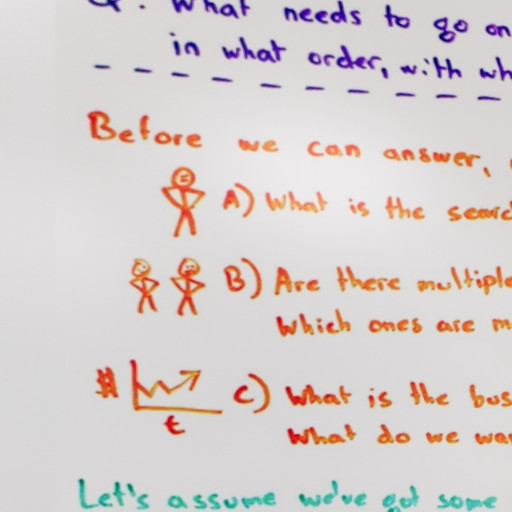 Q. What needs to go on
in what order, with wh
Before we can answer,
A) What is the searc
B) Are there multiple
Which ones are m
# C) What is the bus
t
What do we wan
Let's assume we've got some